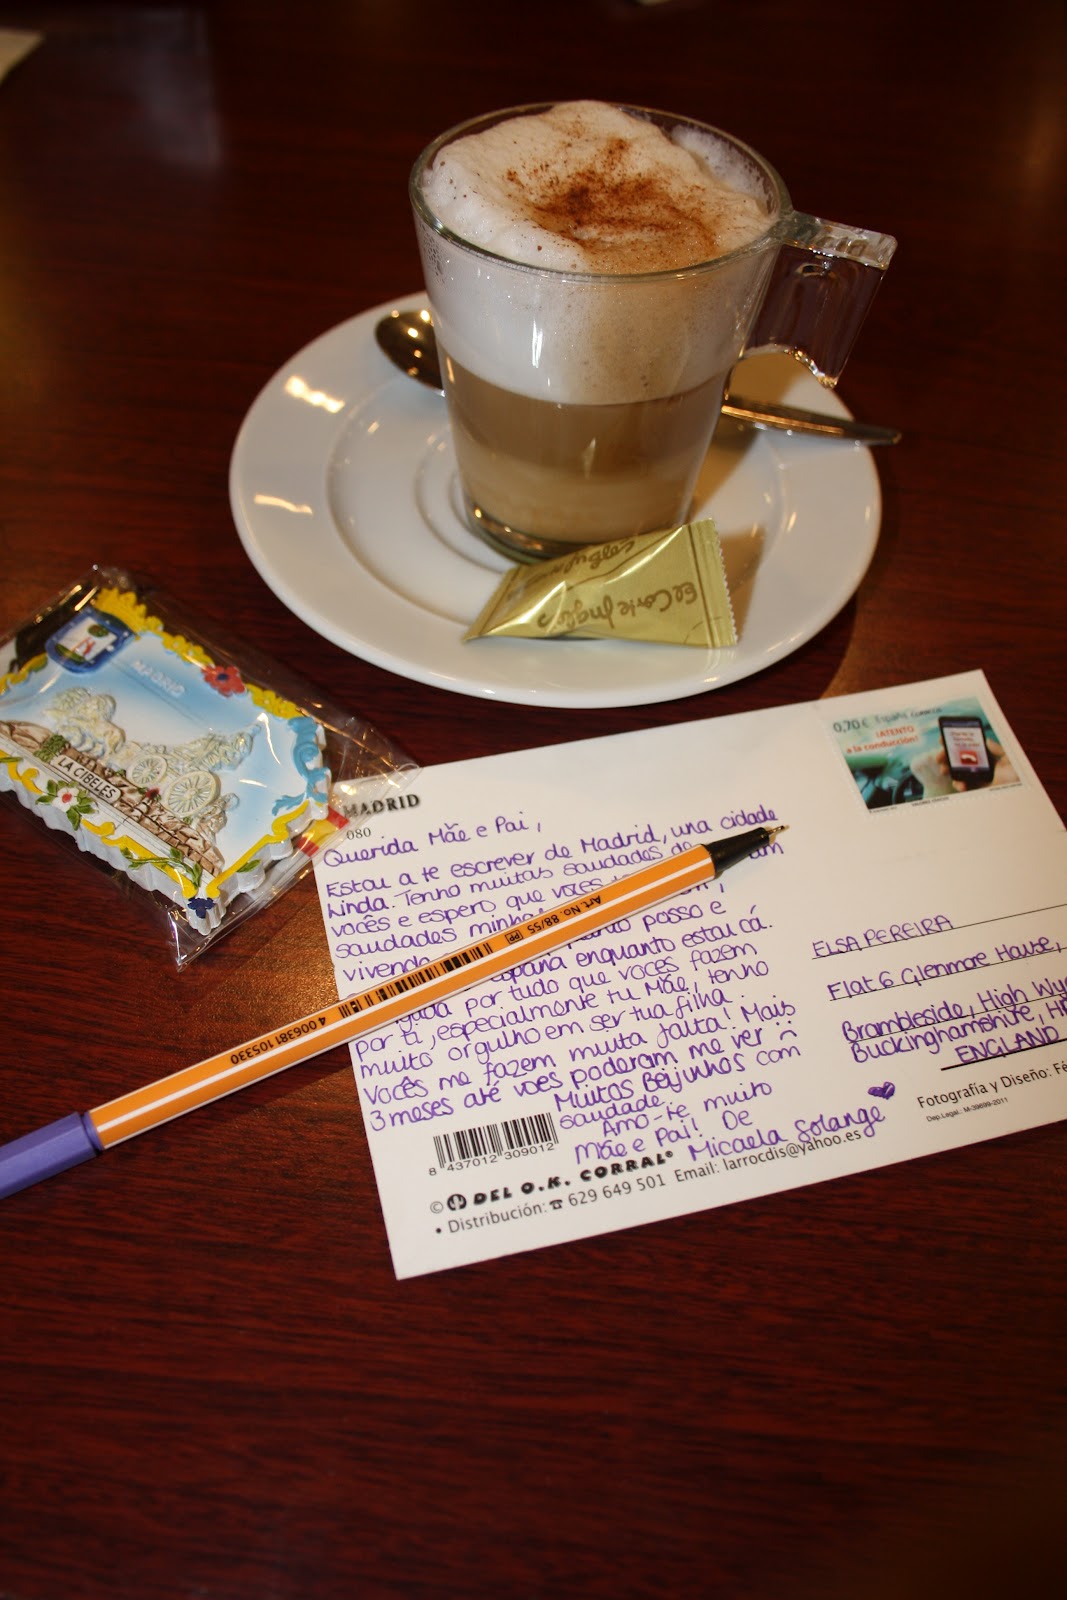 El Corte Inglés
MADRID
LA CIBELES
0,70 € España CORREOS
¡ATENTO
a la conducción!
MADRID
080
Querida Mãe e Pai,
Estou a te escrever de Madrid, una cidade
linda. Tenho muitas saudades de
vocês e espero que voces
saudades minha
vivendo posso e
España enquanto estou cá.
por tudo que voces fazem
por ti, especialmente tu Mãe, tenho
muito orgulho em ser tua filha.
Vocês me fazem muita falta! Mais
3 meses até voes poderam me ver
Muitos Beijinhos com
saudade.
Amo-te muito
Mãe e Pai! De
Micaela Solange
Art. No. 88/55
4 006381 105330
ELSA PEREIRA
Flat 6 Glenmore House,
Brambleside, High Wy
Buckinghamshire, HP
ENGLAND
8 437012 309012
© DEL O.K. CORRAL®
• Distribución: ☎ 629 649 501 Email: larrocdis@yahoo.es
Fotografía y Diseño: Fé
Dep. Legal.: M-39699-2011